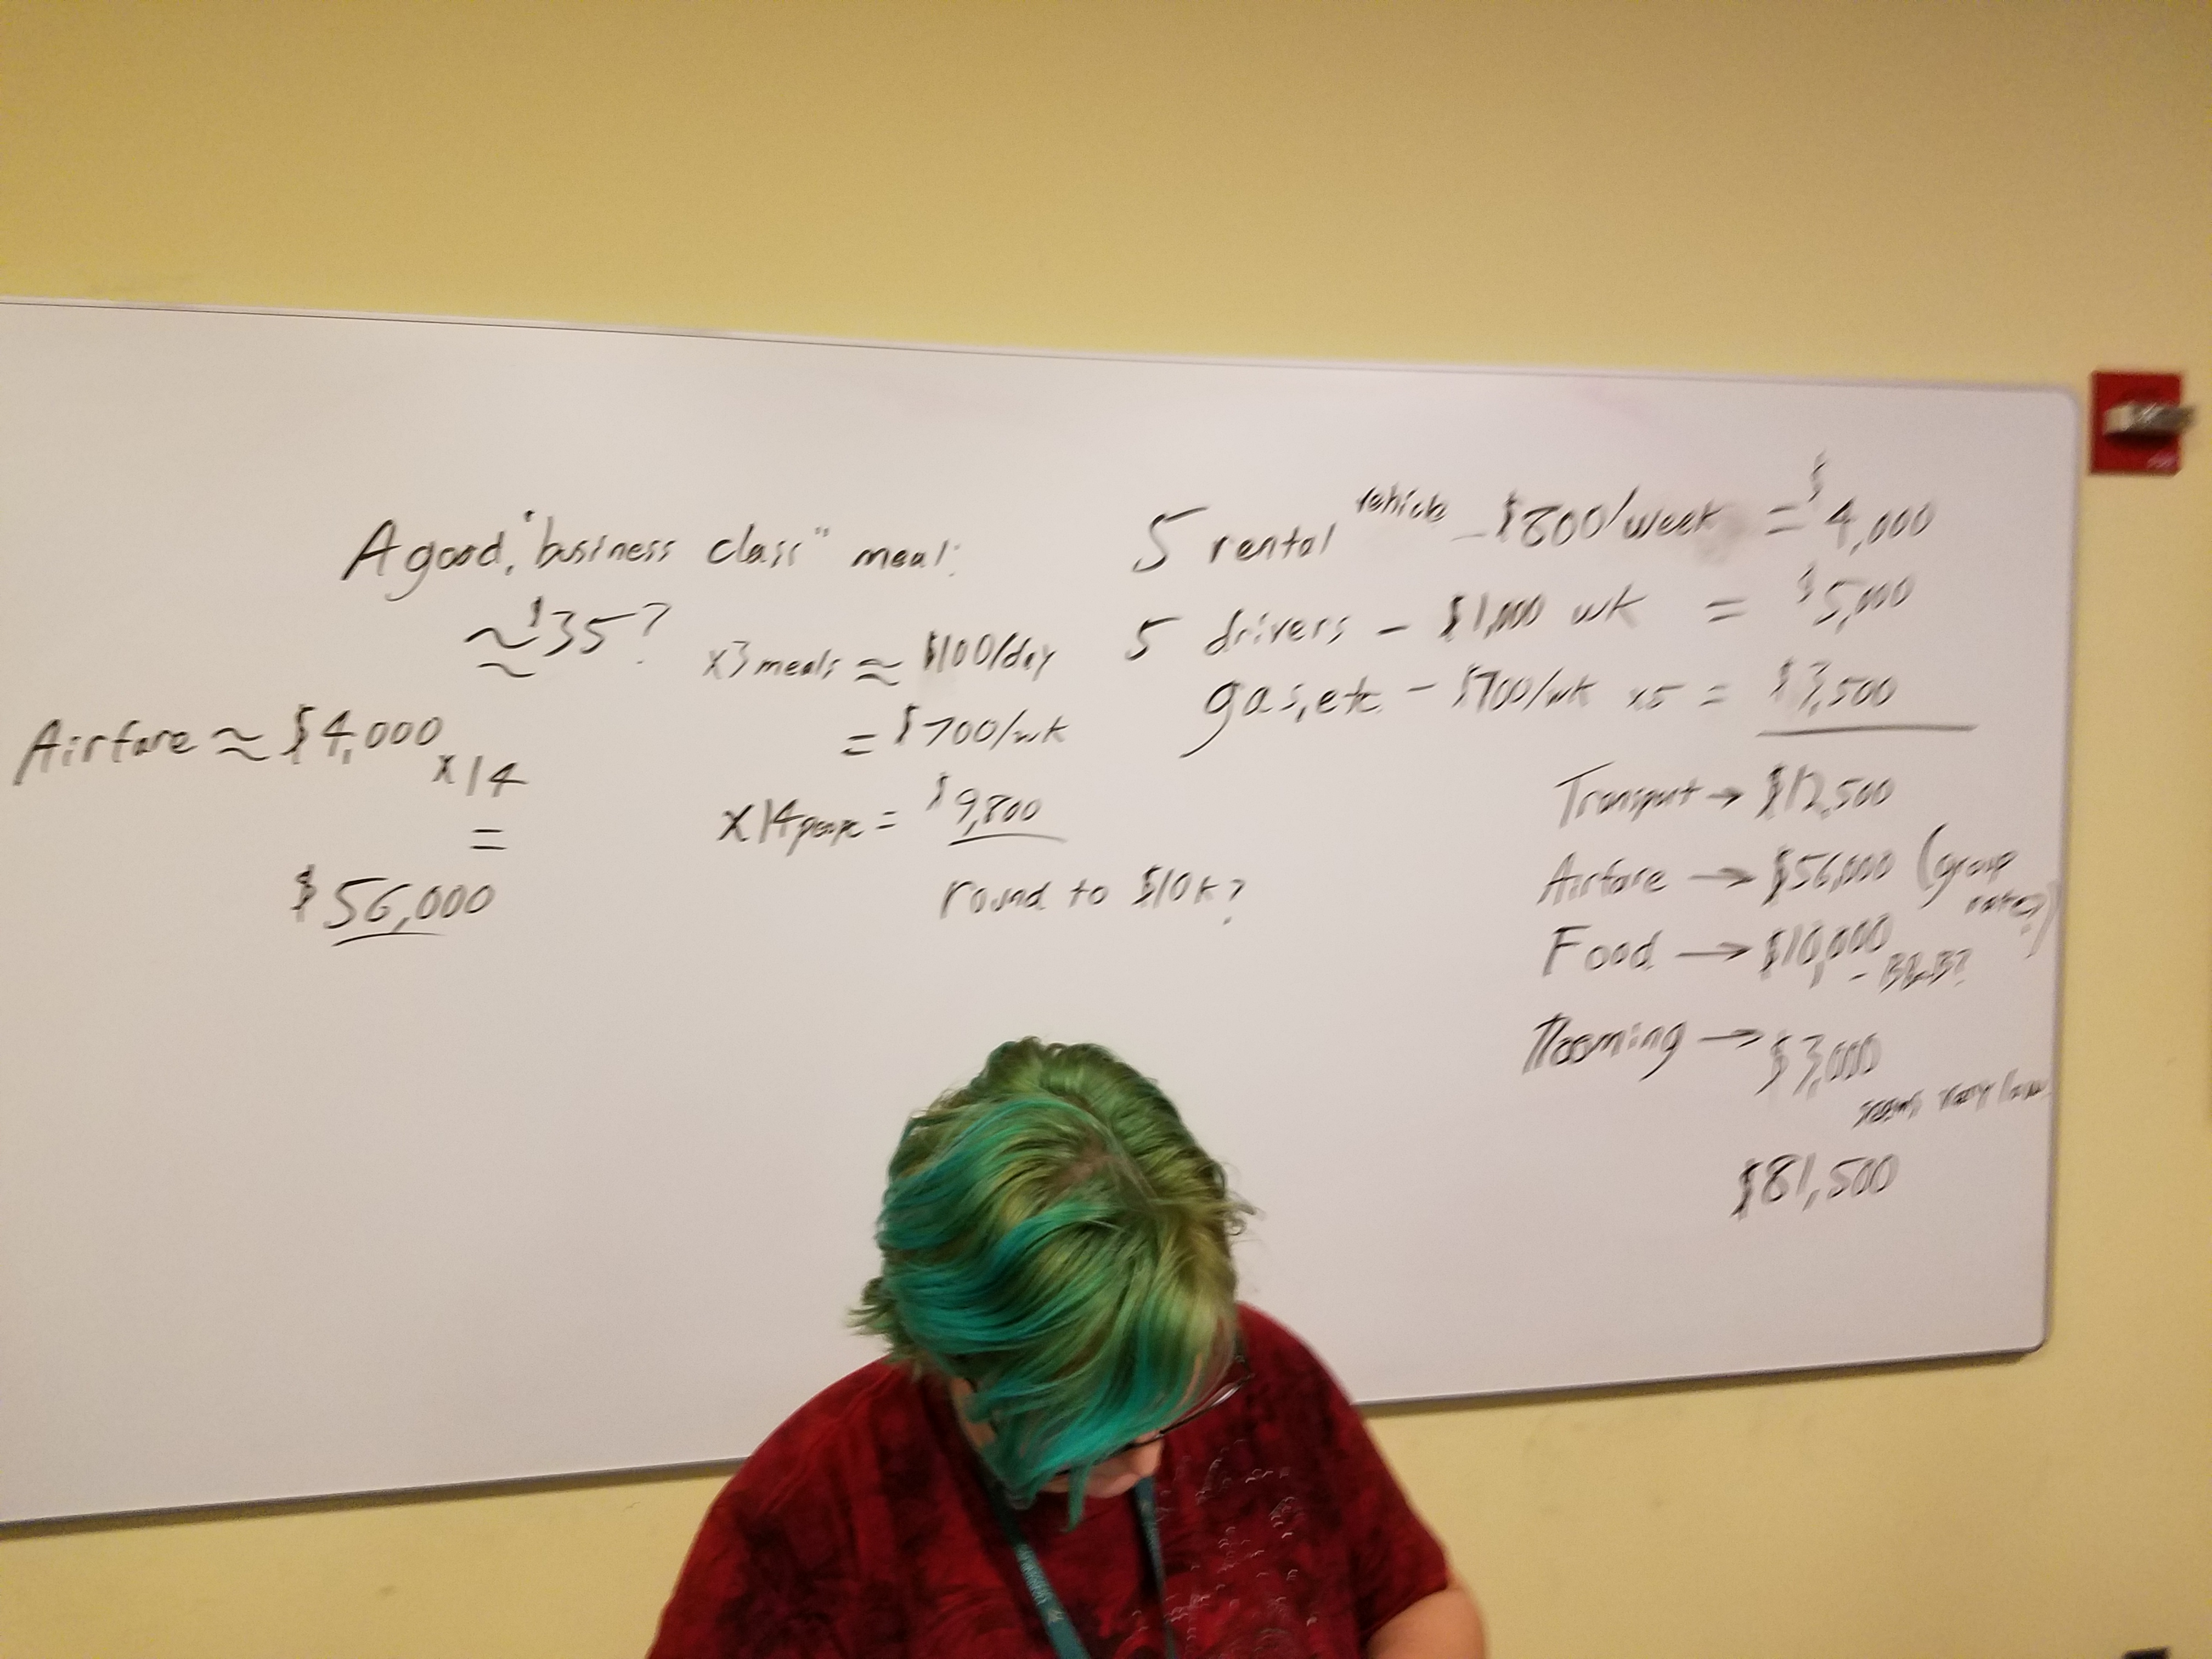 A good, "business class" meal:
≈ $35?
x3 meals ≈ $100/day
= $700/wk
x14 people = $9,800
round to $10k?
Airfare ≈ $4,000
x14
=
$56,000
5 rental vehicle - $800/week = $4,000
5 drivers - $1,000 wk = $5,000
gas, etc - $700/wk x5 = $3,500
Transport → $12,500
Airfare → $56,000 (group
rates?)
Food → $10,000
- B&B?
Rooming → $3,000
seems very low
$81,500